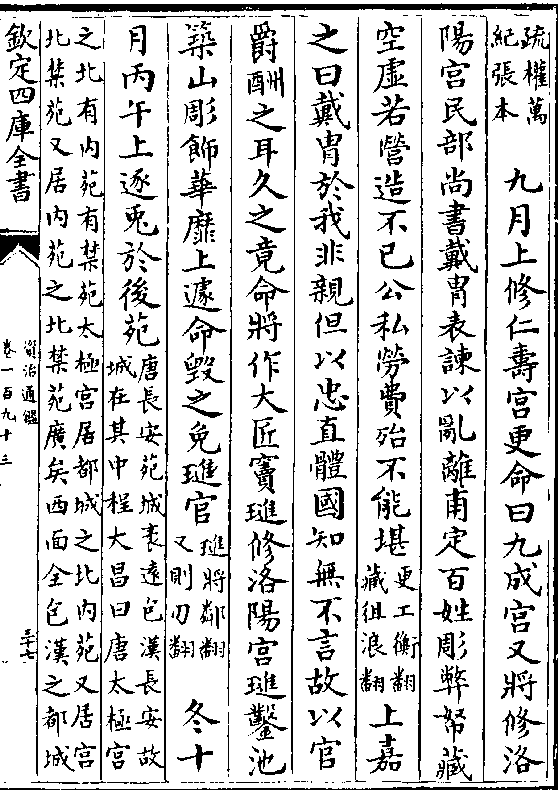 疏權萬
紀張本
九月上修仁壽宮更命曰九成宮又將修洛
陽宮民部尚書戴胄表諫以亂離甫定百姓彫弊帑藏
空虛若營造不已公私勞費殆不能堪
更工衡翻
藏徂浪翻
上嘉
之曰戴胄於我非親但以忠直體國知無不言故以官
爵酬之耳久之竟命將作大匠竇璡修洛陽宮璡鑿池
築山彫飾華靡上遽命毀之免璡官
璡將鄰翻
又則刃翻
冬十
月丙午上逐兎於後苑
唐長安苑城袤遠包漢長安故
城在其中程大昌曰唐太極宮
之北有内苑有禁苑太極宮居都城之北内苑又居宮
北禁苑又居内苑之北禁苑廣矣西面全包漢之都城
欽定四庫全書
資治通鑑
卷一百九十三
三十七